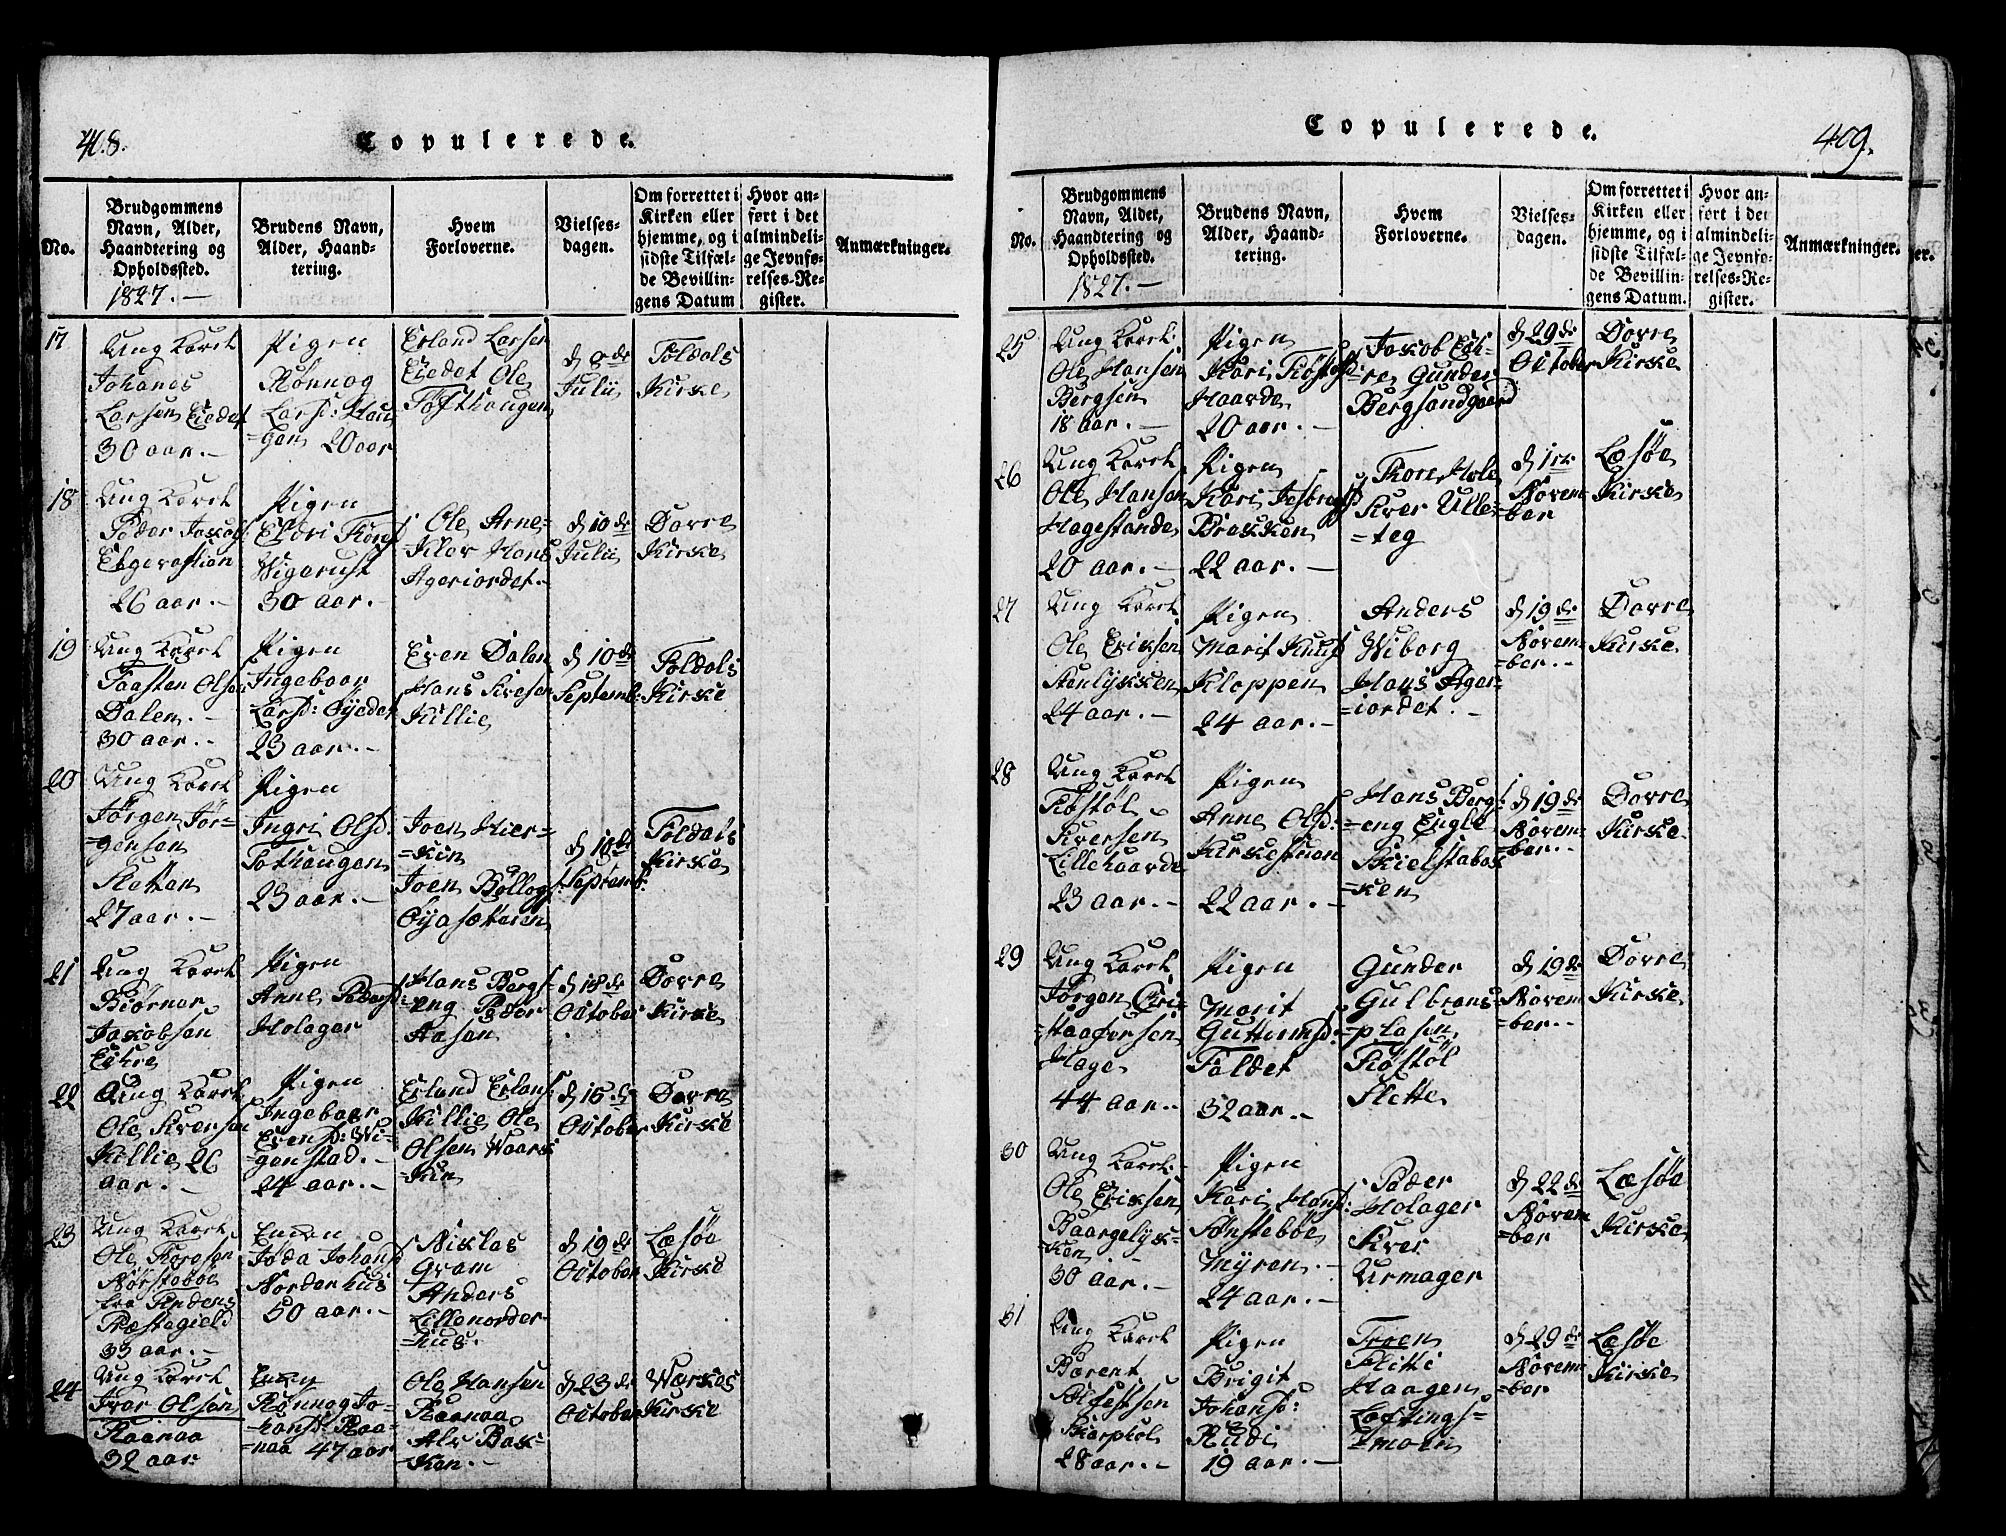 408.
Copulerede.
No.
Brudgommens
Navn, Alder,
Haandtering og
Opholdssted.
1827.-
Brudens Navn,
Alder, Haand-
tering.
Hvem
Forloverne.
Vielses-
dagen.
Om forrettet i
Kirken eller
hjemme, og i
sidste Tilfæl-
de Bevillin-
gens Datum
Hvor an-
ført i det
almindeli-
ge Jevnfø-
relses-Re-
gister.
Anmærkninger.
17
Ung Karl
Johanes
Larsen Eiedet
30 aar.-
Pigen
Rønnog
Larsd: Hau
=gen 20 aar
Erland Larsen
Eiedet Ole
Tofthaugen
d 8de
Julii
Foldals
Kirke
18
Ung Karl
Peder Jakobs:
26 aar.-
Pigen
Wigerust
30 aar.-
Ole Arne=
Klev Hans
Ageriordet.-
d 10de
Julii
Dovre
Kirke
19
Ung Karl
Taasten Olsen
Dalen.-
30 aar.-
Pigen
Ingeboer
Larsd: Øyedet
23 aar.-
Even Dalen
Hans Iversen
Killie
d 10de
Septemb:
Foldals
Kirke
20
Ung Karl
Jørgen Jør-
=gensen
Sletten
27 aar.-
Pigen
Ingri Olsd:
Tofhaugen
23 aar.-
Joen Hier=
=kin
Joen Bollogs:
Øyasætteren
d 10de
Septemb:
Foldals
Kirke
21
Ung Karl
Biørner
Jakobsen
Eikre
Pigen
Anne Pedersd:
Holager
Hans Bergs=
=eng Peder
Aasen
d 18de
October
Dovre
Kirke
22
Ung Karl
Ole Iversen
Killie 26
aar.-
Pigen
Ingeboer
Evensd: Wi=
=genstad.-
24 aar.-
Erland Erlans:
Killie Ole
Olsen
d 15de
October
Dovre
Kirke
23
Ung Karl
Ole Toresen
Nørstebøe
fra
Præstegield
33 aar.-
Enken
Joda Johansd
Norderhus
50 aar.-
Niklas
Gram
Anders
Lillenorder
=hus.
d 19de
October
Læsøe
Kirke
24
Ung Karl
Ivar Olsen
Raanaa
32 aar
Enken
Rønnog Jo-
=hansd: Raa-
=naa 47 aar
Ole Hansen
Raanaa
Alv Bak=
=ken.-
d 23de
October
Værkes
Kirke
409.
Copulerede.
No.
Brudgommens
Navn, Alder,
Haandtering og
Opholdssted.
1827.-
Brudens Navn,
Alder, Haand-
tering.
Hvem
Forloverne.
Vielses-
dagen.
Om forrettet i
Kirken eller
hjemme, og i
sidste Tilfæl-
de Bevillin-
gens Datum.
Hvor an-
ført i det
almindeli-
ge Jevnfø-
relses-Re-
gister.
Anmærkninger.
25
Ung Karl
Ole Hansen
Bergsen
18 aar.-
Pigen
Kari
Haarde
20 aar.-
Jakob Eik-
re Gunder
Bergsandgaard
d 29de
October
Dovre
Kirke
26
Ung Karl
Ole Hansen
Hagestande
20 aar.-
Pigen
Kari
Brekken
22 aar.-
Tore Hole
Iver Ulle=
=teg
d 1ste
Novem=
ber
Læsøe
Kirke
27
Ung Karl
Ole Eriksen
Stenlykken
24 aar.-
Pigen
Marit Knuts
Kloppen
24 aar.-
Anders
Wiborg
Hans Ager=
=iordet.-
d 19de
Novem=
=ber.-
Dovre
Kirke
28
Ung Karl
Røstøl
Iversen
Lillehaarde
23 aar.-
Pigen
Anne Olsd:
Kirkestuen
22 aar.-
Hans Bergs:
=eng Engle
Skielstabak
=ken
d 19de
Novem=
ber.-
Dovre
Kirke
29
Ung Karl
Jørgen Cri=
=staafersen
Hage
44 aar.-
Pigen
Marit
Guttormsd:
Faldet
32 aar.-
Gunder
Gulbrans=
=plasen
Røstøl
Slette
d 19de
Novem
ber.-
Dovre
Kirke
30
Ung Karl
Ole Eriksen
Baargelyk=
=ken
30 aar.-
Pigen
Kari Hansd:
Tønstebøe
Myren.-
24 aar.-
Peder
Holager
Iver
Urmager
d 22de
Novem
=ber
Læsøe
Kirke
31
Ung Karl
Berent
28 aar.-
Pigen
Brigit
Johansd:
Rudi
19 aar.-
Haagen
Løftings=
=moen
d 29de
Novem=
=ber
Læsøe
Kirke